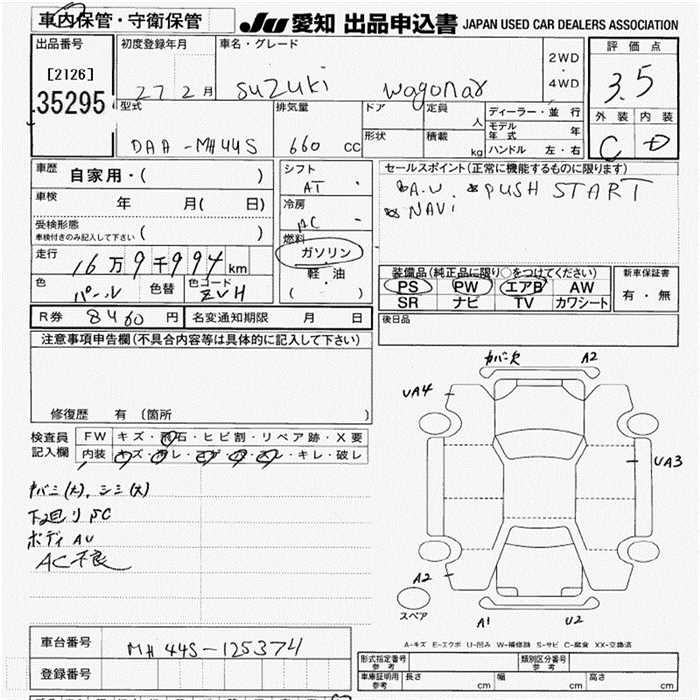 車内保管・守衛保管
JU 愛知 出品申込書 JAPAN USED CAR DEALERS ASSOCIATION
出品番号
[2126]
35295
初度登録年月
27 2 月
車名・グレード
suzuki wagonar
2WD
・
4WD
評価点
3.5
外装 内装
C D
型式
DAA-MH44S
排気量
660 cc
ドア
形状
定員
人
積載
kg
ディーラー・並行
モデル年式 年
ハンドル 左・右
車歴
自家用・( )
車検
年 月( 日)
受検形態
車検付きのみ記入して下さい ( )
走行
16万9千994km
色
パール
色替
色コード
ZVH
シフト
AT
冷房
AC
燃料
ガソリン
・
軽・油
( )
セールスポイント(正常に機能するものに限ります)
A.W. PUSH START
NAVi
装備品(純正品に限り○をつけてください)
PS PW エアB AW
SR ナビ TV カワシート
新車保証書
有・無
R券 8460 円
名変通知期限 月 日
後日品
注意事項申告欄(不具合内容等は具体的に記入して下さい)
修復歴 有 (箇所
検査員
記入欄
FW キズ・飛石・ヒビ割・リペア跡・X要
内装 キズ・・キレ・破レ
ヤバミ(大)、シミ(大)
下廻りPC
ボディAU
AC不良
カバー欠 A2
UA4
UA3
A2
スペア
A1 U2
A-キズ E-エクボ U-凹み W-補修跡 S-サビ C-腐食 XX-交換済
車台番号 MH44S-125374
登録番号
形式指定番号
参考
類別区分番号
参考
車庫証明用
参考
長さ cm 幅 cm 高さ cm